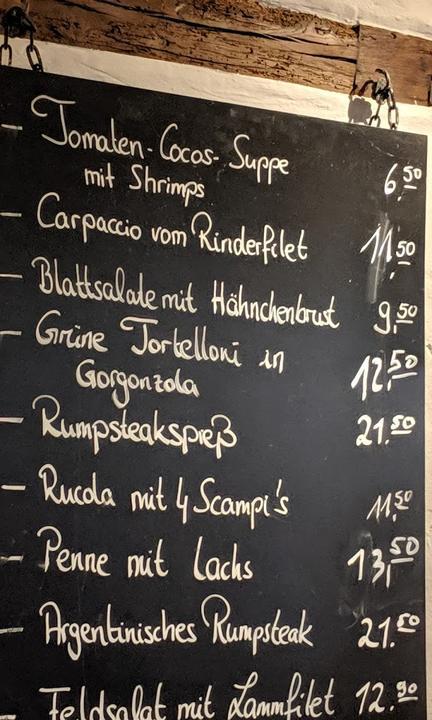 - Tomaten-Cocos-Suppe
mit Shrimps 6,50
- Carpaccio vom Rinderfilet 11,50
- Blattsalate mit Hähnchenbrust 9,50
- Grüne Tortelloni in
Gorgonzola 12,50
- Rumpsteakspieß 21.50
- Rucola mit 4 Scampi's 11,50
- Penne mit Lachs 13,50
- Argentinisches Rumpsteak 21.50
- Feldsalat mit Lammfilet 12.90